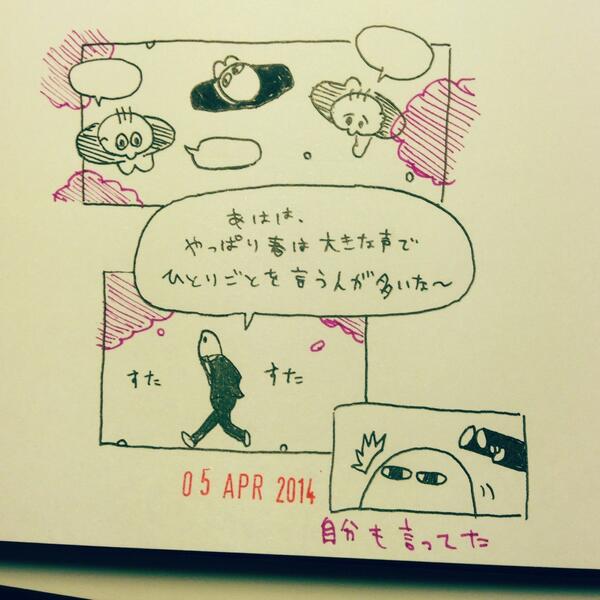 あはは、
やっぱり春は大きな声で
ひとりごとを言う人が多いな〜
すた
すた
05 APR 2014
自分も言ってた